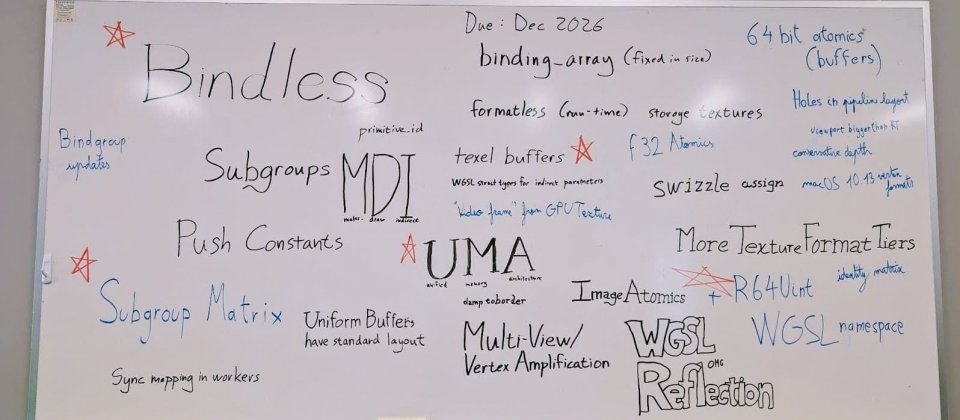 Due: Dec 2026
Bindless
binding_array (fixed in size)
64 bit atomics
(buffers)
formatless (run-time) storage textures
Holes in pipeline layout
viewport bigger than RT
conservative depth
macOS 10.13 vertex
formats
Bindgroup
updates
primitive_id
Subgroups
MDI
multi- draw indirect
texel buffers
f32 Atomics
WGSL struct types for indirect parameters
swizzle assign
"Video frame" from GPUTexture
Push Constants
UMA
unified memory architecture
More Texture Format Tiers
identity matrix
Subgroup Matrix
clamptoborder
Image Atomics
+ R64Uint
Uniform Buffers
have standard layout
Multi-View/
Vertex Amplification
WGSL
OMG
Reflection
WGSL namespace
Sync mapping in workers